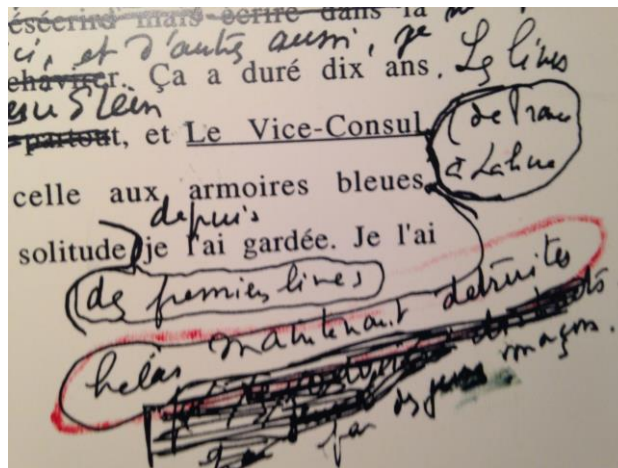 mais écrire dans la
ci, et d'autres aussi, je
chavirer. Ça a duré dix ans. Les livres
Stein
partout, et Le Vice-Consul (de France
à Lahore
celle aux armoires bleues
depuis
solitude je l'ai gardée. Je l'ai
des premiers livres
hélas maintenant détruites
par des jeunes maçons.